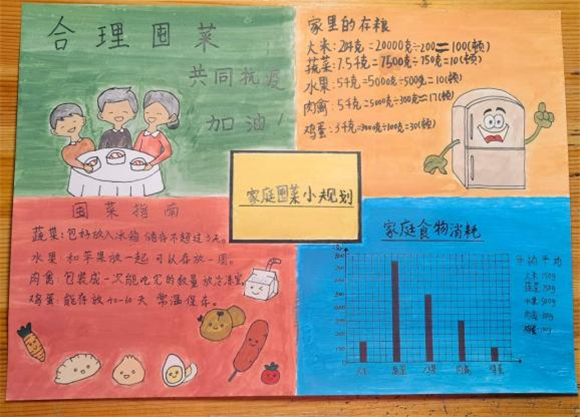 合理囤菜
共同抗疫
加油！
家里的存粮
大米：20千克=20000克÷200=100(顿)
蔬菜：7.5千克=7500克÷750克=10(顿)
水果：5千克=5000克÷500克=10(顿)
肉禽：5千克=5000克÷300克≈17(顿)
鸡蛋：3千克=3000克÷100克=30(顿)
家庭囤菜小规划
囤菜指南
蔬菜：包好放入冰箱 储存不超过3天。
水果：和苹果放一起 可以存放一周。
肉禽：包装成一次能吃完的数量放冷冻室。
鸡蛋：能存放40-60天 常温保存。
家庭食物消耗
大米 蔬菜 水果 肉禽 鸡蛋